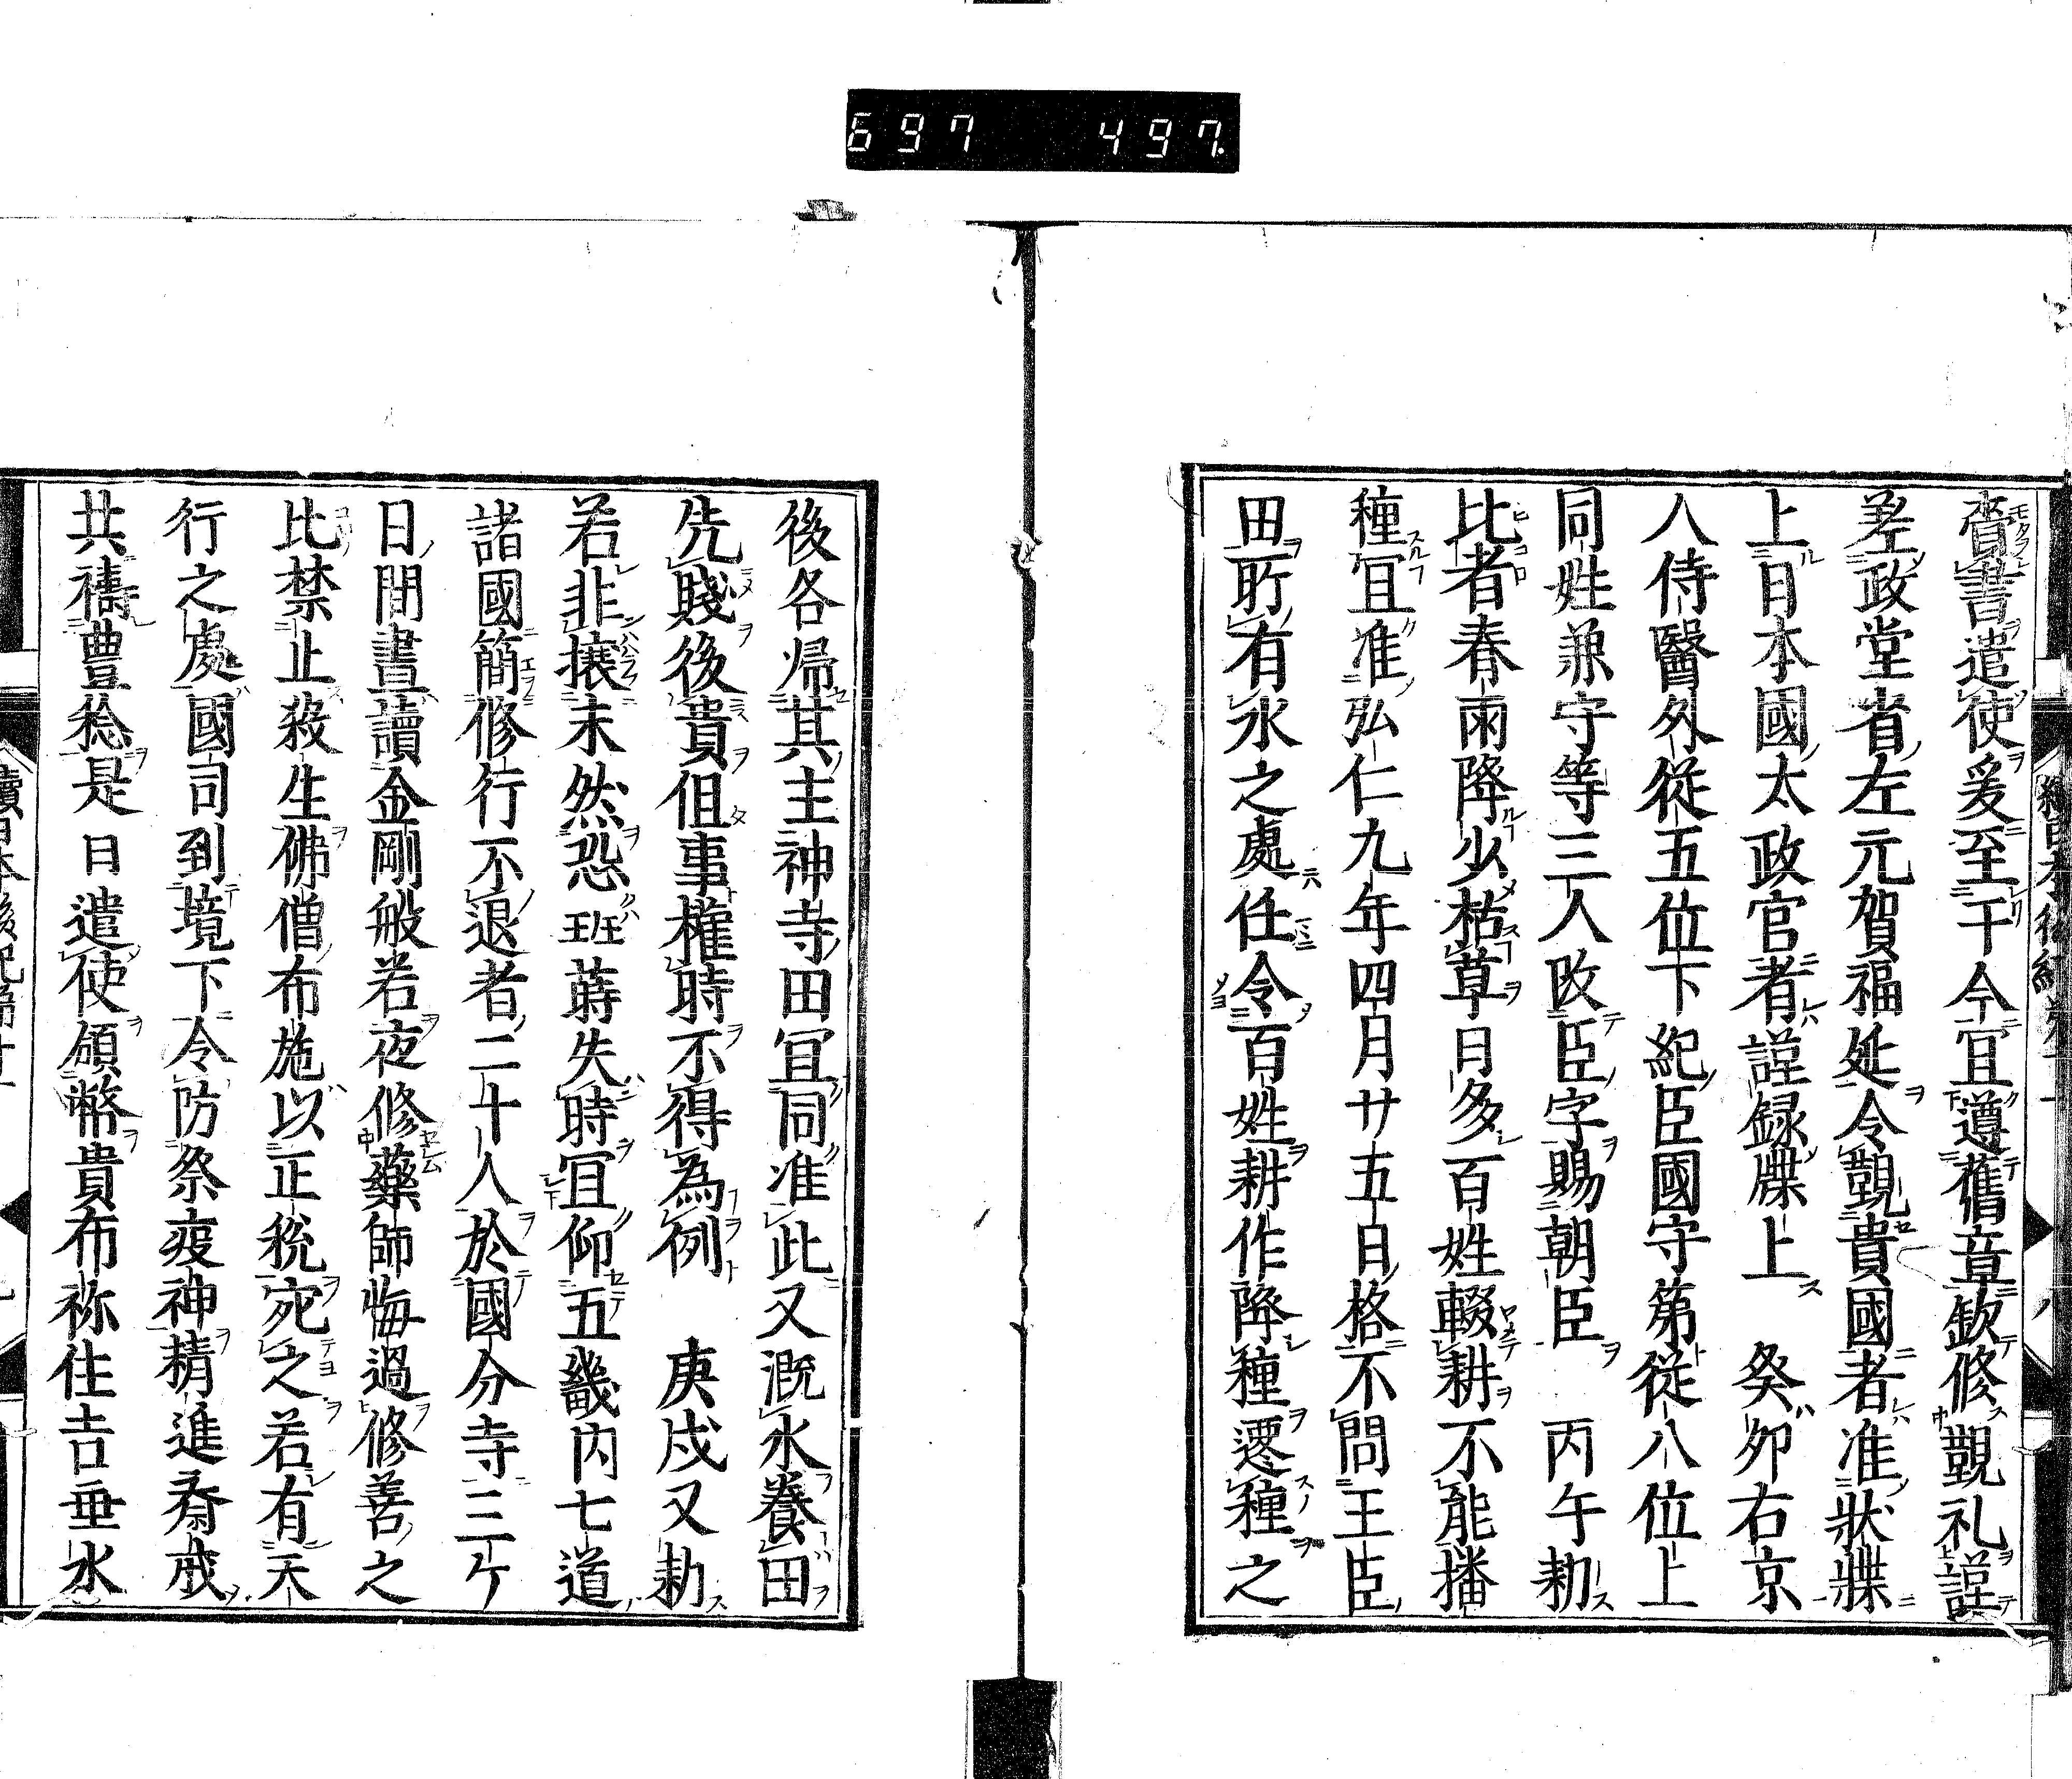 697 497.
齎書遣使爰至于今宜遵舊章欽修覲礼謹
差政堂省左允賀福延令覲貴國者准狀牒
上日本國太政官者謹録牒上　癸夘右京
人侍醫外從五位下紀臣國守第從八位上
同姓兼守等三人改臣字賜朝臣　丙午勅
比者春雨降少枯草月多百姓輟耕不能播
種冝准弘仁九年四月廿五日格不問王臣
田所有水之處任令百姓耕作降種遷種之
後各帰其主神寺田冝同准此又漑水養田
先賤後貴但事權時不得為例　庚戌又勅
若非攘未然恐班蒔失時冝仰五畿内七道
諸國簡修行不退者二十人於國分寺三ケ
日間晝讀金剛般若夜修藥師悔過修善之
比禁止殺生佛僧布施以正税宛之若有天
行之處國司到境下令防祭疫神精進齋戒
共禱豊稔是日遣使頒幣貴布祢住吉垂水